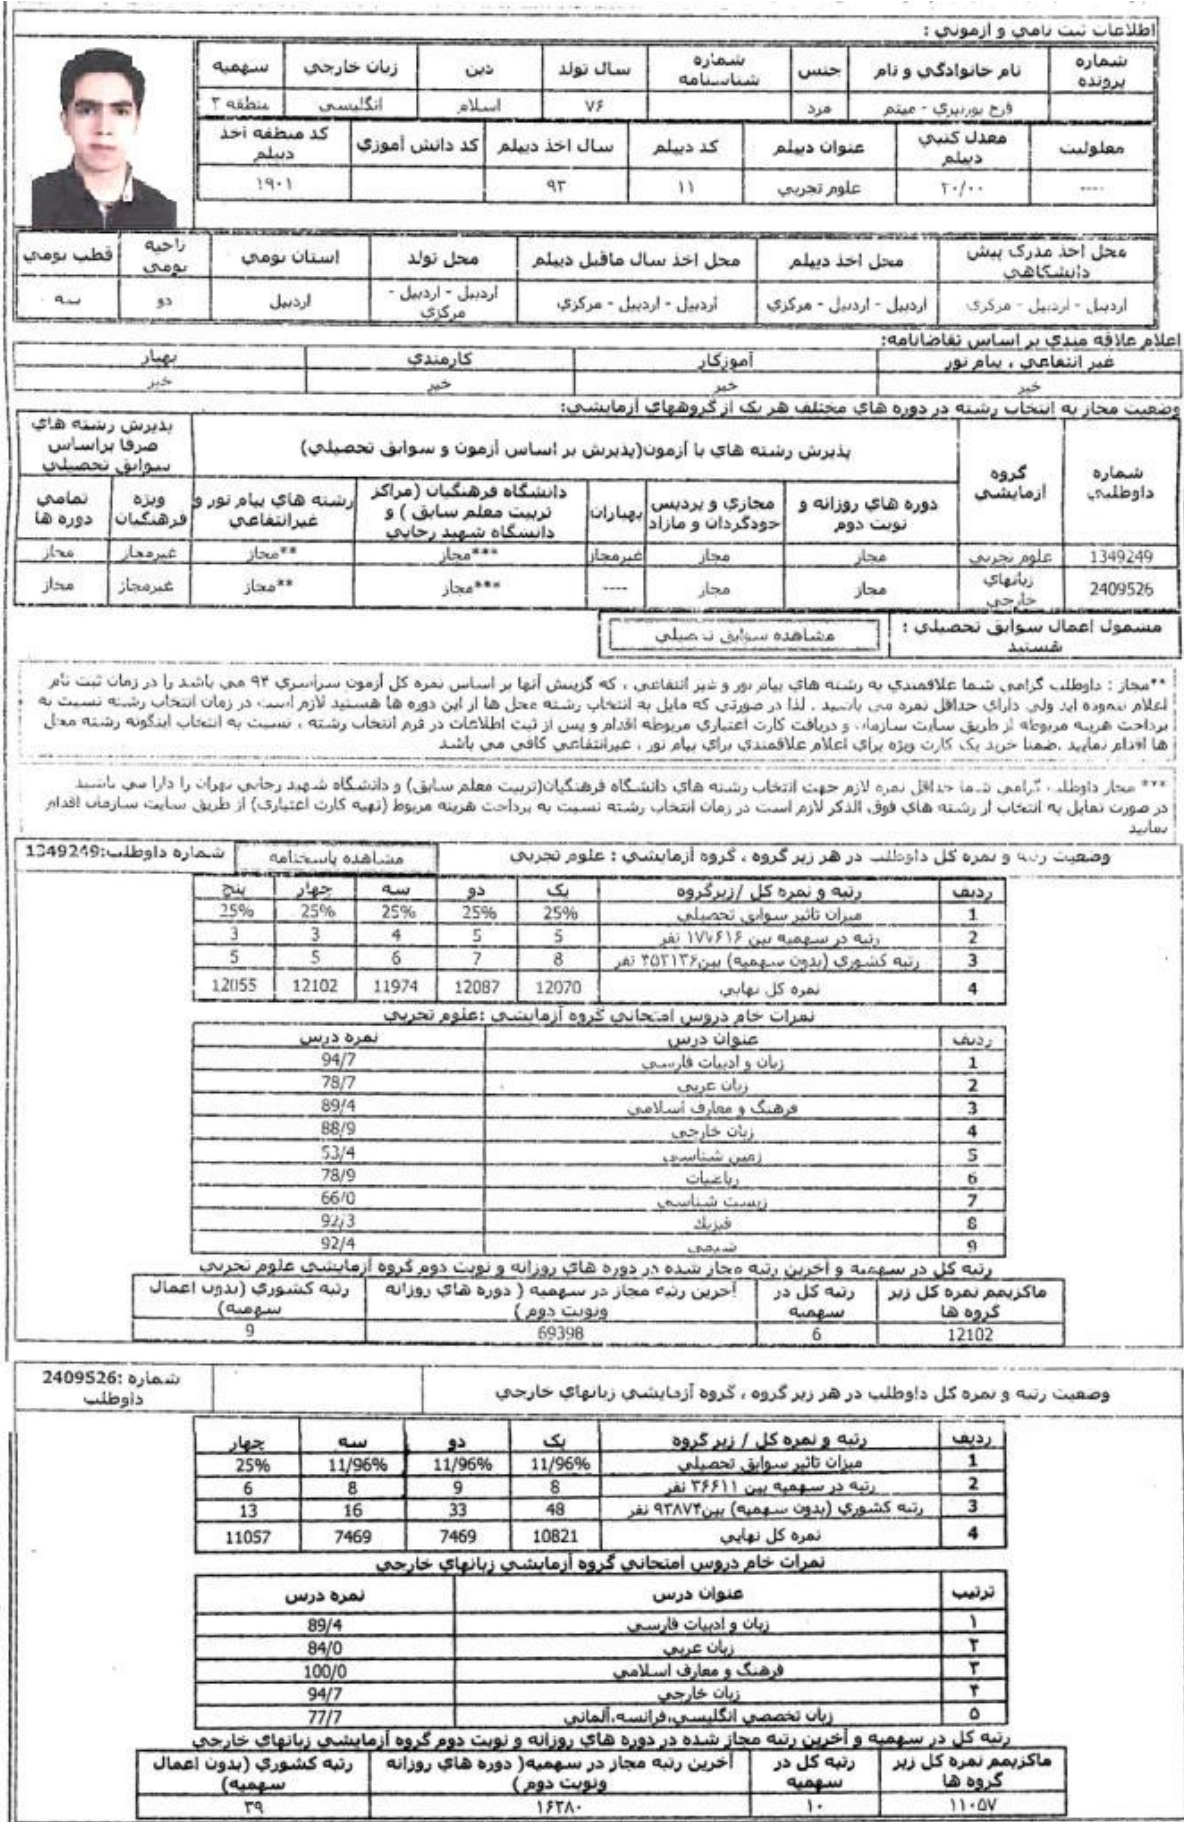 اطلاعات ثبت نامي و آزموني :
شماره پرونده
نام خانوادگي و نام
جنس
شماره شناسنامه
سال تولد
دين
زبان خارجي
سهميه
فرج پورنيري - ميثم
مرد
۷۶
اسلام
انگليسي
منطقه ۲
معلوليت
معدل کتبي ديپلم
عنوان ديپلم
کد ديپلم
سال اخذ ديپلم
کد دانش آموزي
کد منطقه اخذ ديپلم
----
۲۰/۰۰
علوم تجربي
۱۱
۹۳
۱۹۰۱
محل اخذ مدرک پيش دانشگاهي
محل اخذ ديپلم
محل اخذ سال ماقبل ديپلم
محل تولد
استان بومي
ناحيه بومي
قطب بومي
اردبيل - اردبيل - مرکزي
اردبيل - اردبيل - مرکزي
اردبيل - اردبيل - مرکزي
اردبيل - اردبيل - مرکزي
اردبيل
دو
سه
اعلام علاقه مندي بر اساس تقاضانامه:
غير انتفاعي ، پيام نور
آموزگار
کارمندي
بهيار
خير
خير
خير
خير
وضعيت مجاز به انتخاب رشته در دوره هاي مختلف هر يک از گروههاي آزمايشي:
شماره داوطلبي
گروه آزمايشي
پذيرش رشته هاي با آزمون(پذيرش بر اساس آزمون و سوابق تحصيلي)
پذيرش رشته هاي صرفا براساس سوابق تحصيلي
دوره هاي روزانه و نوبت دوم
مجازي و پرديس خودگردان و مازاد
بهياران
دانشگاه فرهنگيان (مراکز تربيت معلم سابق ) و دانشگاه شهيد رجايي
رشته هاي پيام نور و غيرانتفاعي
ويژه فرهنگيان
تمامي دوره ها
1349249
علوم تجربي
مجاز
مجاز
غيرمجاز
***مجاز
**مجاز
غيرمجاز
مجاز
2409526
زبانهاي خارجي
مجاز
مجاز
----
***مجاز
**مجاز
غيرمجاز
مجاز
مشمول اعمال سوابق تحصيلي : هستيد
مشاهده سوابق تحصيلي
**مجاز : داوطلب گرامي شما علاقمندي به رشته هاي پيام نور و غير انتفاعي ، که گزينش آنها بر اساس نمره کل آزمون سراسري ۹۴ مي باشد را در زمان ثبت نام
اعلام ننموده ايد ولي داراي حداقل نمره مي باشيد ، لذا در صورتي که مايل به انتخاب رشته محل ها از اين دوره ها هستيد لازم است در زمان انتخاب رشته نسبت به
پرداخت هزينه مربوطه از طريق سايت سازمان و دريافت کارت اعتباري مربوطه اقدام و پس از ثبت اطلاعات در فرم انتخاب رشته ، نسبت به انتخاب اينگونه رشته محل
ها اقدام نماييد .ضمنا خريد يک کارت ويژه براي اعلام علاقمندي براي پيام نور ، غيرانتفاعي کافي مي باشد
*** مجاز داوطلب گرامي شما حداقل نمره لازم جهت انتخاب رشته هاي دانشگاه فرهنگيان(تربيت معلم سابق) و دانشگاه شهيد رجايي تهران را دارا مي باشيد
در صورت تمايل به انتخاب از رشته هاي فوق الذکر لازم است در زمان انتخاب رشته نسبت به پرداخت هزينه مربوط (تهيه کارت اعتباري) از طريق سايت سازمان اقدام
نماييد
وضعيت رتبه و نمره کل داوطلب در هر زير گروه ، گروه آزمايشي : علوم تجربي
مشاهده پاسخنامه
شماره داوطلب:1349249
رديف
رتبه و نمره کل /زيرگروه
يک
دو
سه
چهار
پنج
1
ميزان تاثير سوابق تحصيلي
25%
25%
25%
25%
25%
2
رتبه در سهميه بين ۱۷۷۶۱۶ نفر
5
5
4
3
3
3
رتبه کشوري (بدون سهميه) بين۴۵۳۱۳۶ نفر
8
7
6
5
5
4
نمره کل نهايي
12070
12087
11974
12102
12055
نمرات خام دروس امتحاني گروه آزمايشي :علوم تجربي
رديف
عنوان درس
نمره درس
1
زبان و ادبيات فارسي
94/7
2
زبان عربي
78/7
3
فرهنگ و معارف اسلامي
89/4
4
زبان خارجي
88/9
5
زمين شناسي
53/4
6
رياضيات
78/9
7
زيست شناسي
66/0
8
فيزيك
92/3
9
شيمي
92/4
رتبه کل در سهميه و آخرين رتبه مجاز شده در دوره هاي روزانه و نوبت دوم گروه آزمايشي علوم تجربي
ماکزيمم نمره کل زير گروه ها
رتبه کل در سهميه
آخرين رتبه مجاز در سهميه ( دوره هاي روزانه ونوبت دوم )
رتبه کشوري (بدون اعمال سهميه)
12102
6
69398
9
وضعيت رتبه و نمره کل داوطلب در هر زير گروه ، گروه آزمايشي زبانهاي خارجي
شماره :2409526 داوطلب
رديف
رتبه و نمره کل / زير گروه
يک
دو
سه
چهار
1
ميزان تاثير سوابق تحصيلي
11/96%
11/96%
11/96%
25%
2
رتبه در سهميه بين ۳۶۶۱۱ نفر
8
9
8
6
3
رتبه کشوري (بدون سهميه) بين۹۳۸۷۴ نفر
48
33
16
13
4
نمره کل نهايي
10821
7469
7469
11057
نمرات خام دروس امتحاني گروه آزمايشي زبانهاي خارجي
ترتيب
عنوان درس
نمره درس
۱
زبان و ادبيات فارسي
89/4
۲
زبان عربي
84/0
۳
فرهنگ و معارف اسلامي
100/0
۴
زبان خارجي
94/7
۵
زبان تخصصي انگليسي،فرانسه،آلماني
77/7
رتبه کل در سهميه و آخرين رتبه مجاز شده در دوره هاي روزانه و نوبت دوم گروه آزمايشي زبانهاي خارجي
ماکزيمم نمره کل زير گروه ها
رتبه کل در سهميه
آخرين رتبه مجاز در سهميه( دوره هاي روزانه ونوبت دوم )
رتبه کشوري (بدون اعمال سهميه)
۱۱۰۵۷
۱۰
۱۶۳۸۰
۳۹